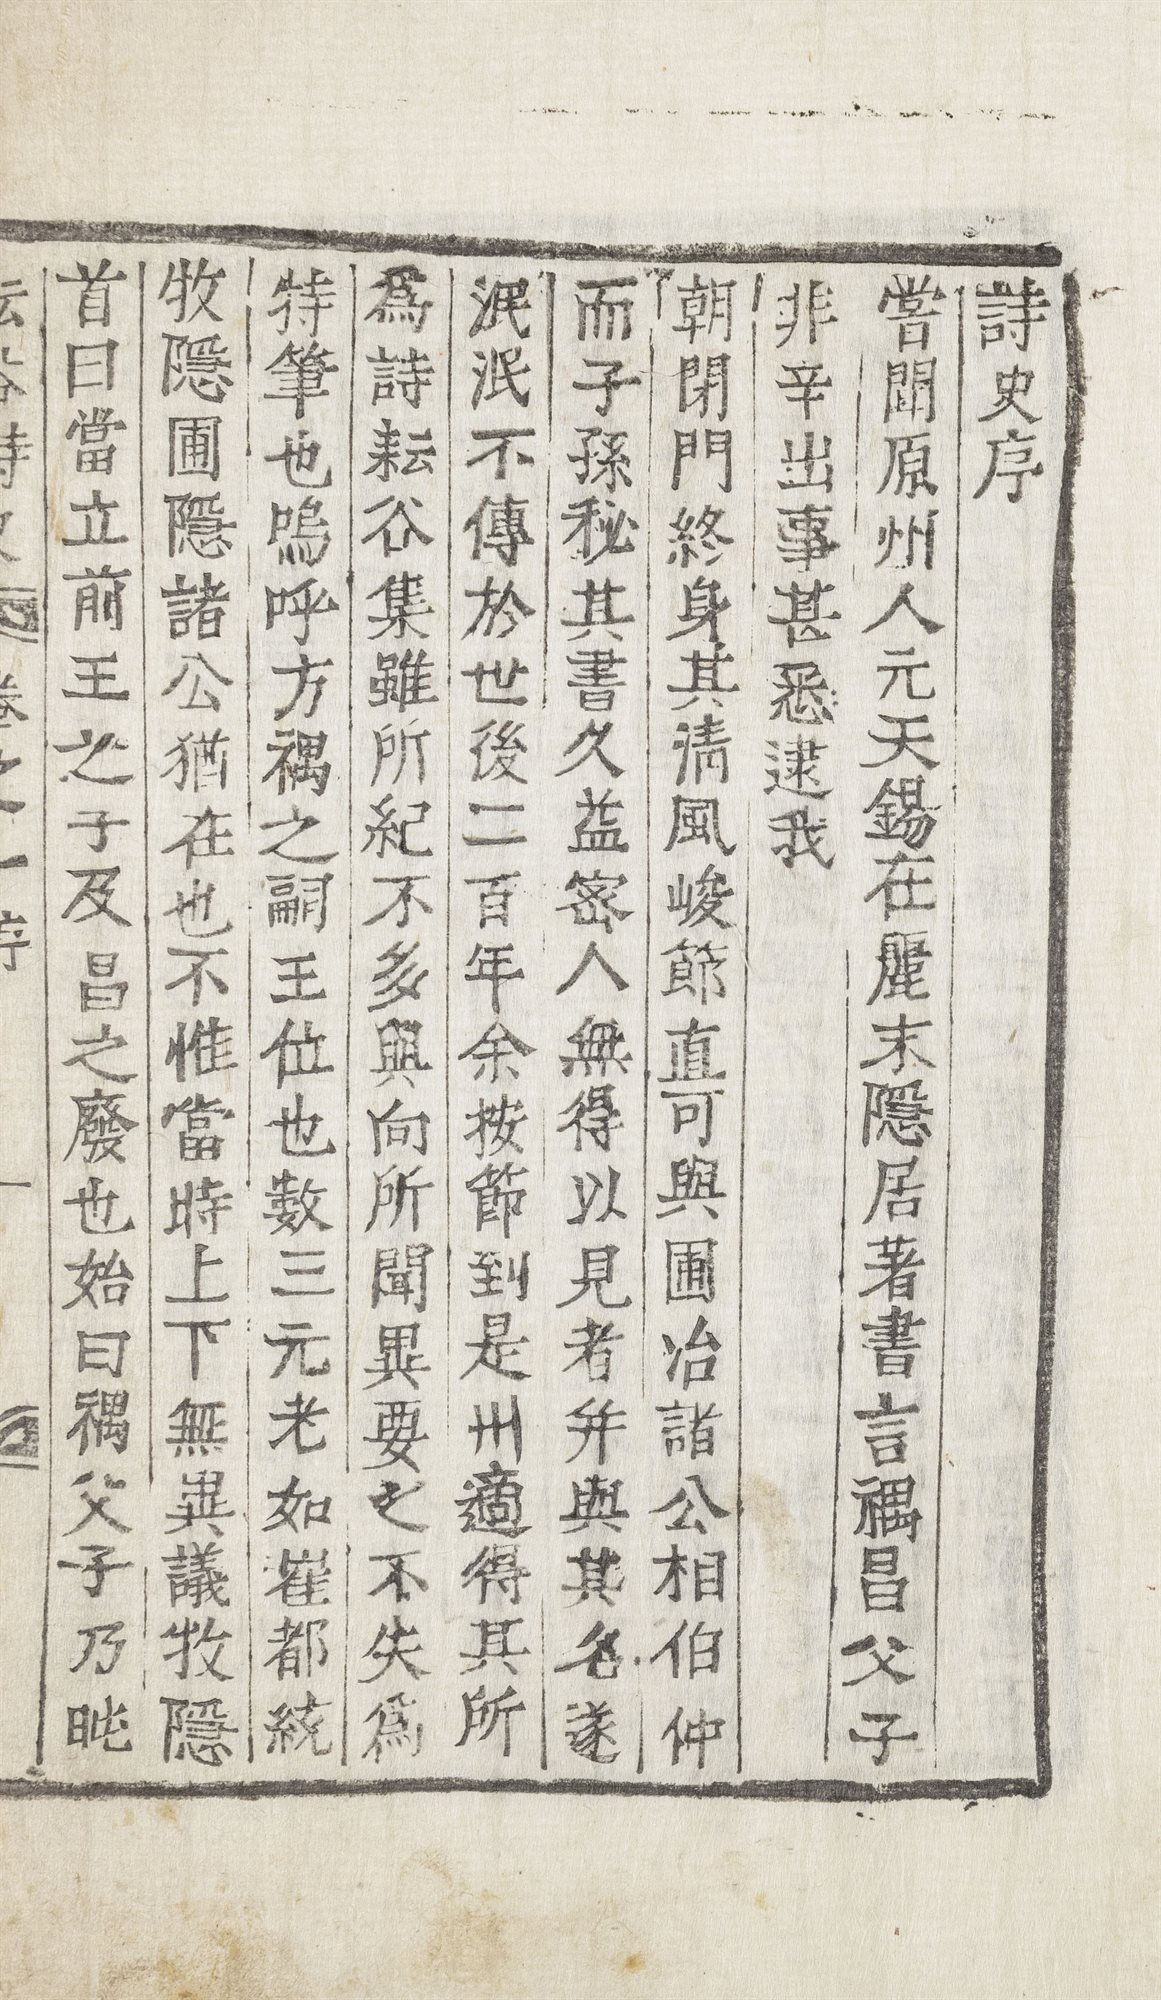 詩史序
嘗聞原州人元天錫在麗末隱居著書言禑昌父子
非辛出事甚悉逮我
朝閉門終身其淸風峻節直可與圃冶諸公相伯仲
而子孫秘其書久益密人無得以見者并與其名遂
泯泯不傳於世後二百年余按節到是州適得其所
爲詩耘谷集雖所紀不多與向所聞異要之不失爲
特筆也嗚呼方禑之嗣王位也數三元老如崔都統
牧隱圃隱諸公猶在也不惟當時上下無異議牧隱
首曰當立前王之子及昌之廢也始曰禑父子乃旽
耘谷詩史 卷之一 序 一